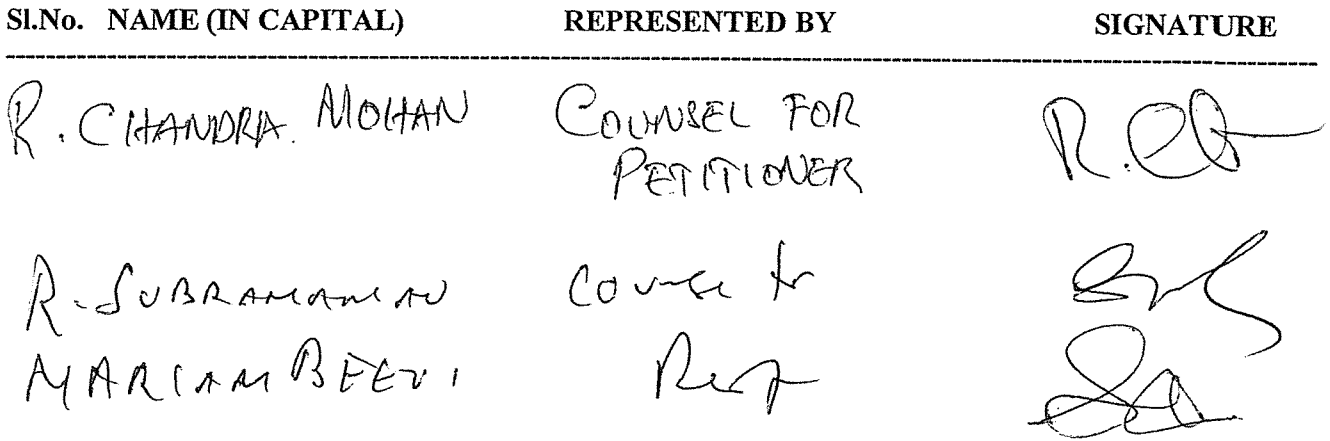 Sl.No. NAME (IN CAPITAL) REPRESENTED BY SIGNATURE
R. CHANDRA. MOHAN COUNSEL FOR
PETITIONER
R. SUBRAMANIAN Counsel for
MARIAM BEEVI Resp